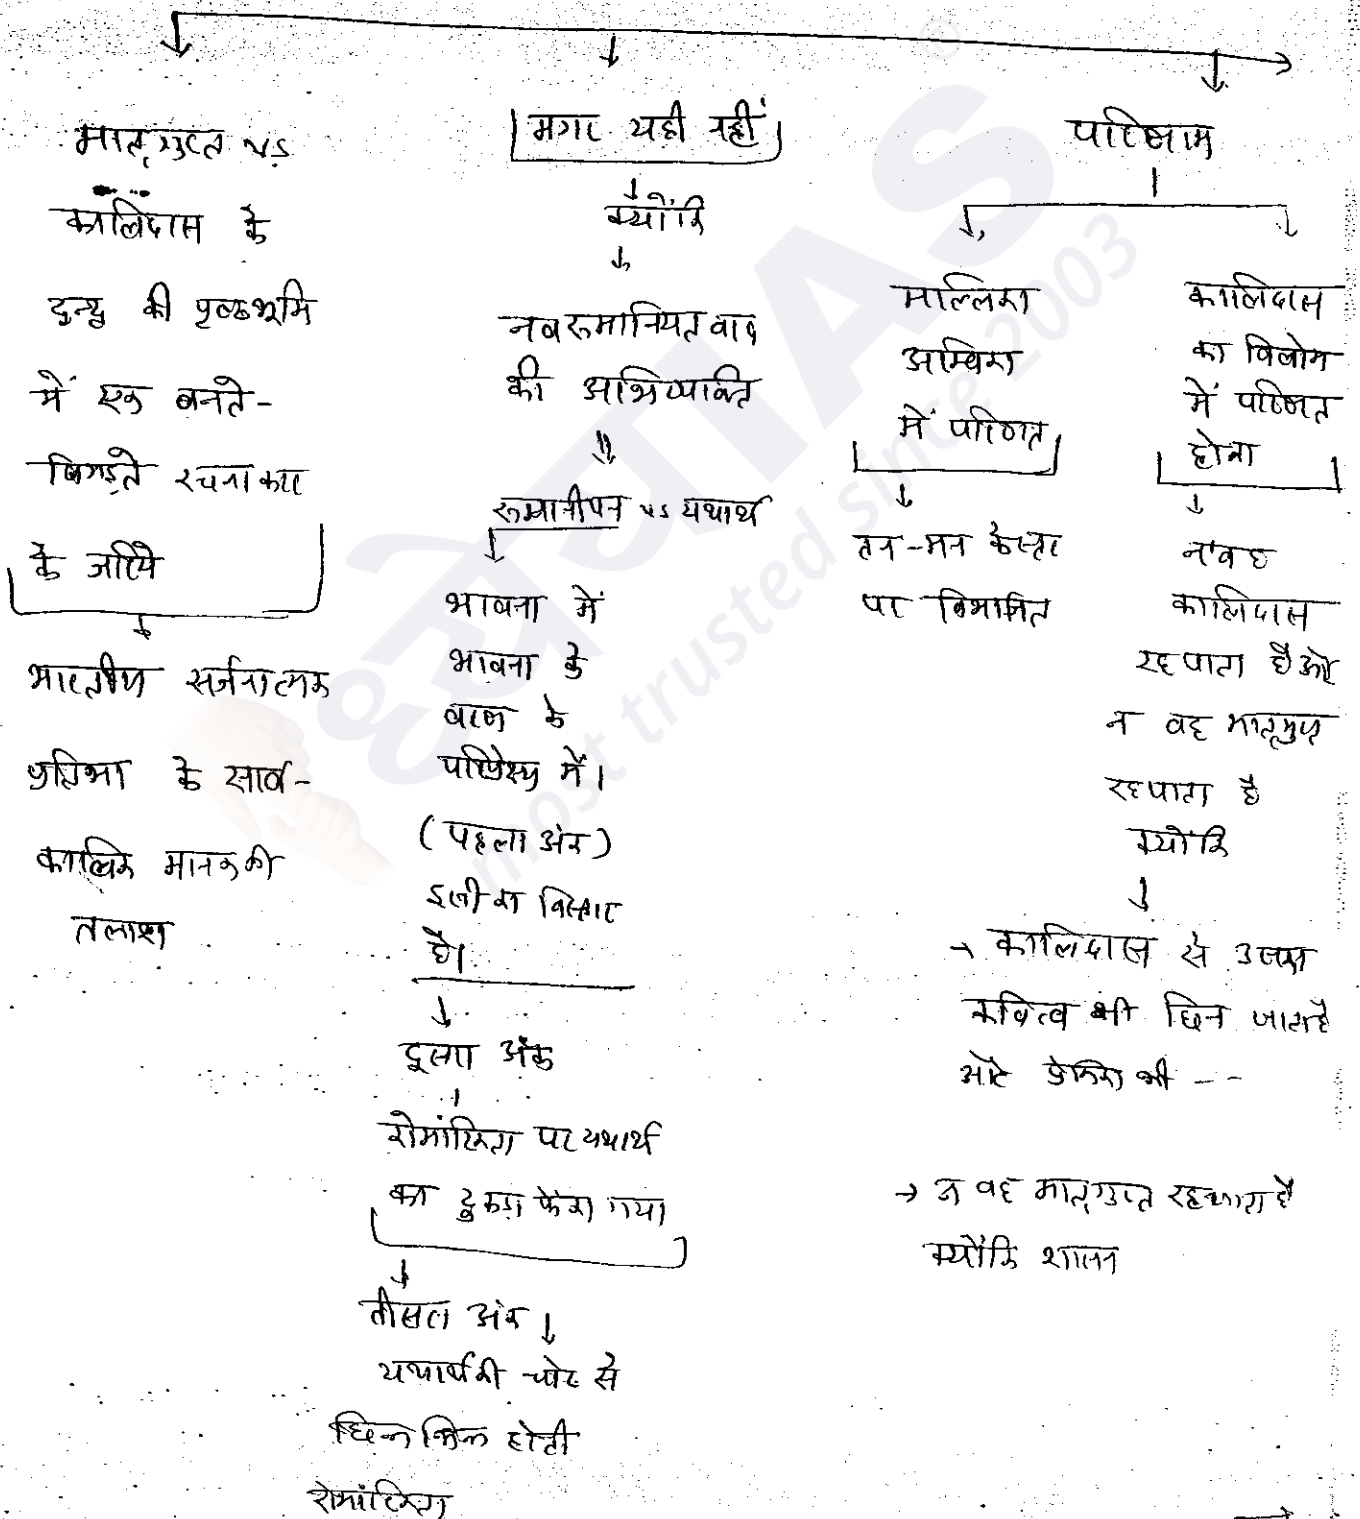 मातृगुप्त vs
कालिदास के
द्वन्द्व की पृष्ठभूमि
में एक बनते-
बिगड़ते रचनाकार
के जरिये
भारतीय सर्जनात्मक
प्रतिभा के सार्व-
कालिक मानक की
तलाश
मगर यही नहीं
क्योंकि
नवरुमानियतवाद
की अभिव्यक्ति
रुमानीपन vs यथार्थ
भावना में
भावना के
वरण के
परिप्रेक्ष्य में।
(पहला अंक)
इसी का विस्तार
है।
दूसरा अंक
रोमांटिकता पर यथार्थ
का टुकड़ा फेंका गया
तीसरा अंक
यथार्थ की चोट से
छिन्न भिन्न होती
रोमांटिकता
परिणाम
मल्लिका
अम्बिका
में परिणत
तन-मन के स्तर
पर विभाजित
कालिदास
का विलोम
में परिणत
होना
न वह
कालिदास
रह पाता है और
न वह मातृगुप्त
रह पाता है
क्योंकि
→ कालिदास से उसका
कवित्व भी छिन जाता है
और प्रेमिका भी --
→ न वह मातृगुप्त रह पाता है
क्योंकि शासन
ध्येय IAS
most trusted since 2003
®